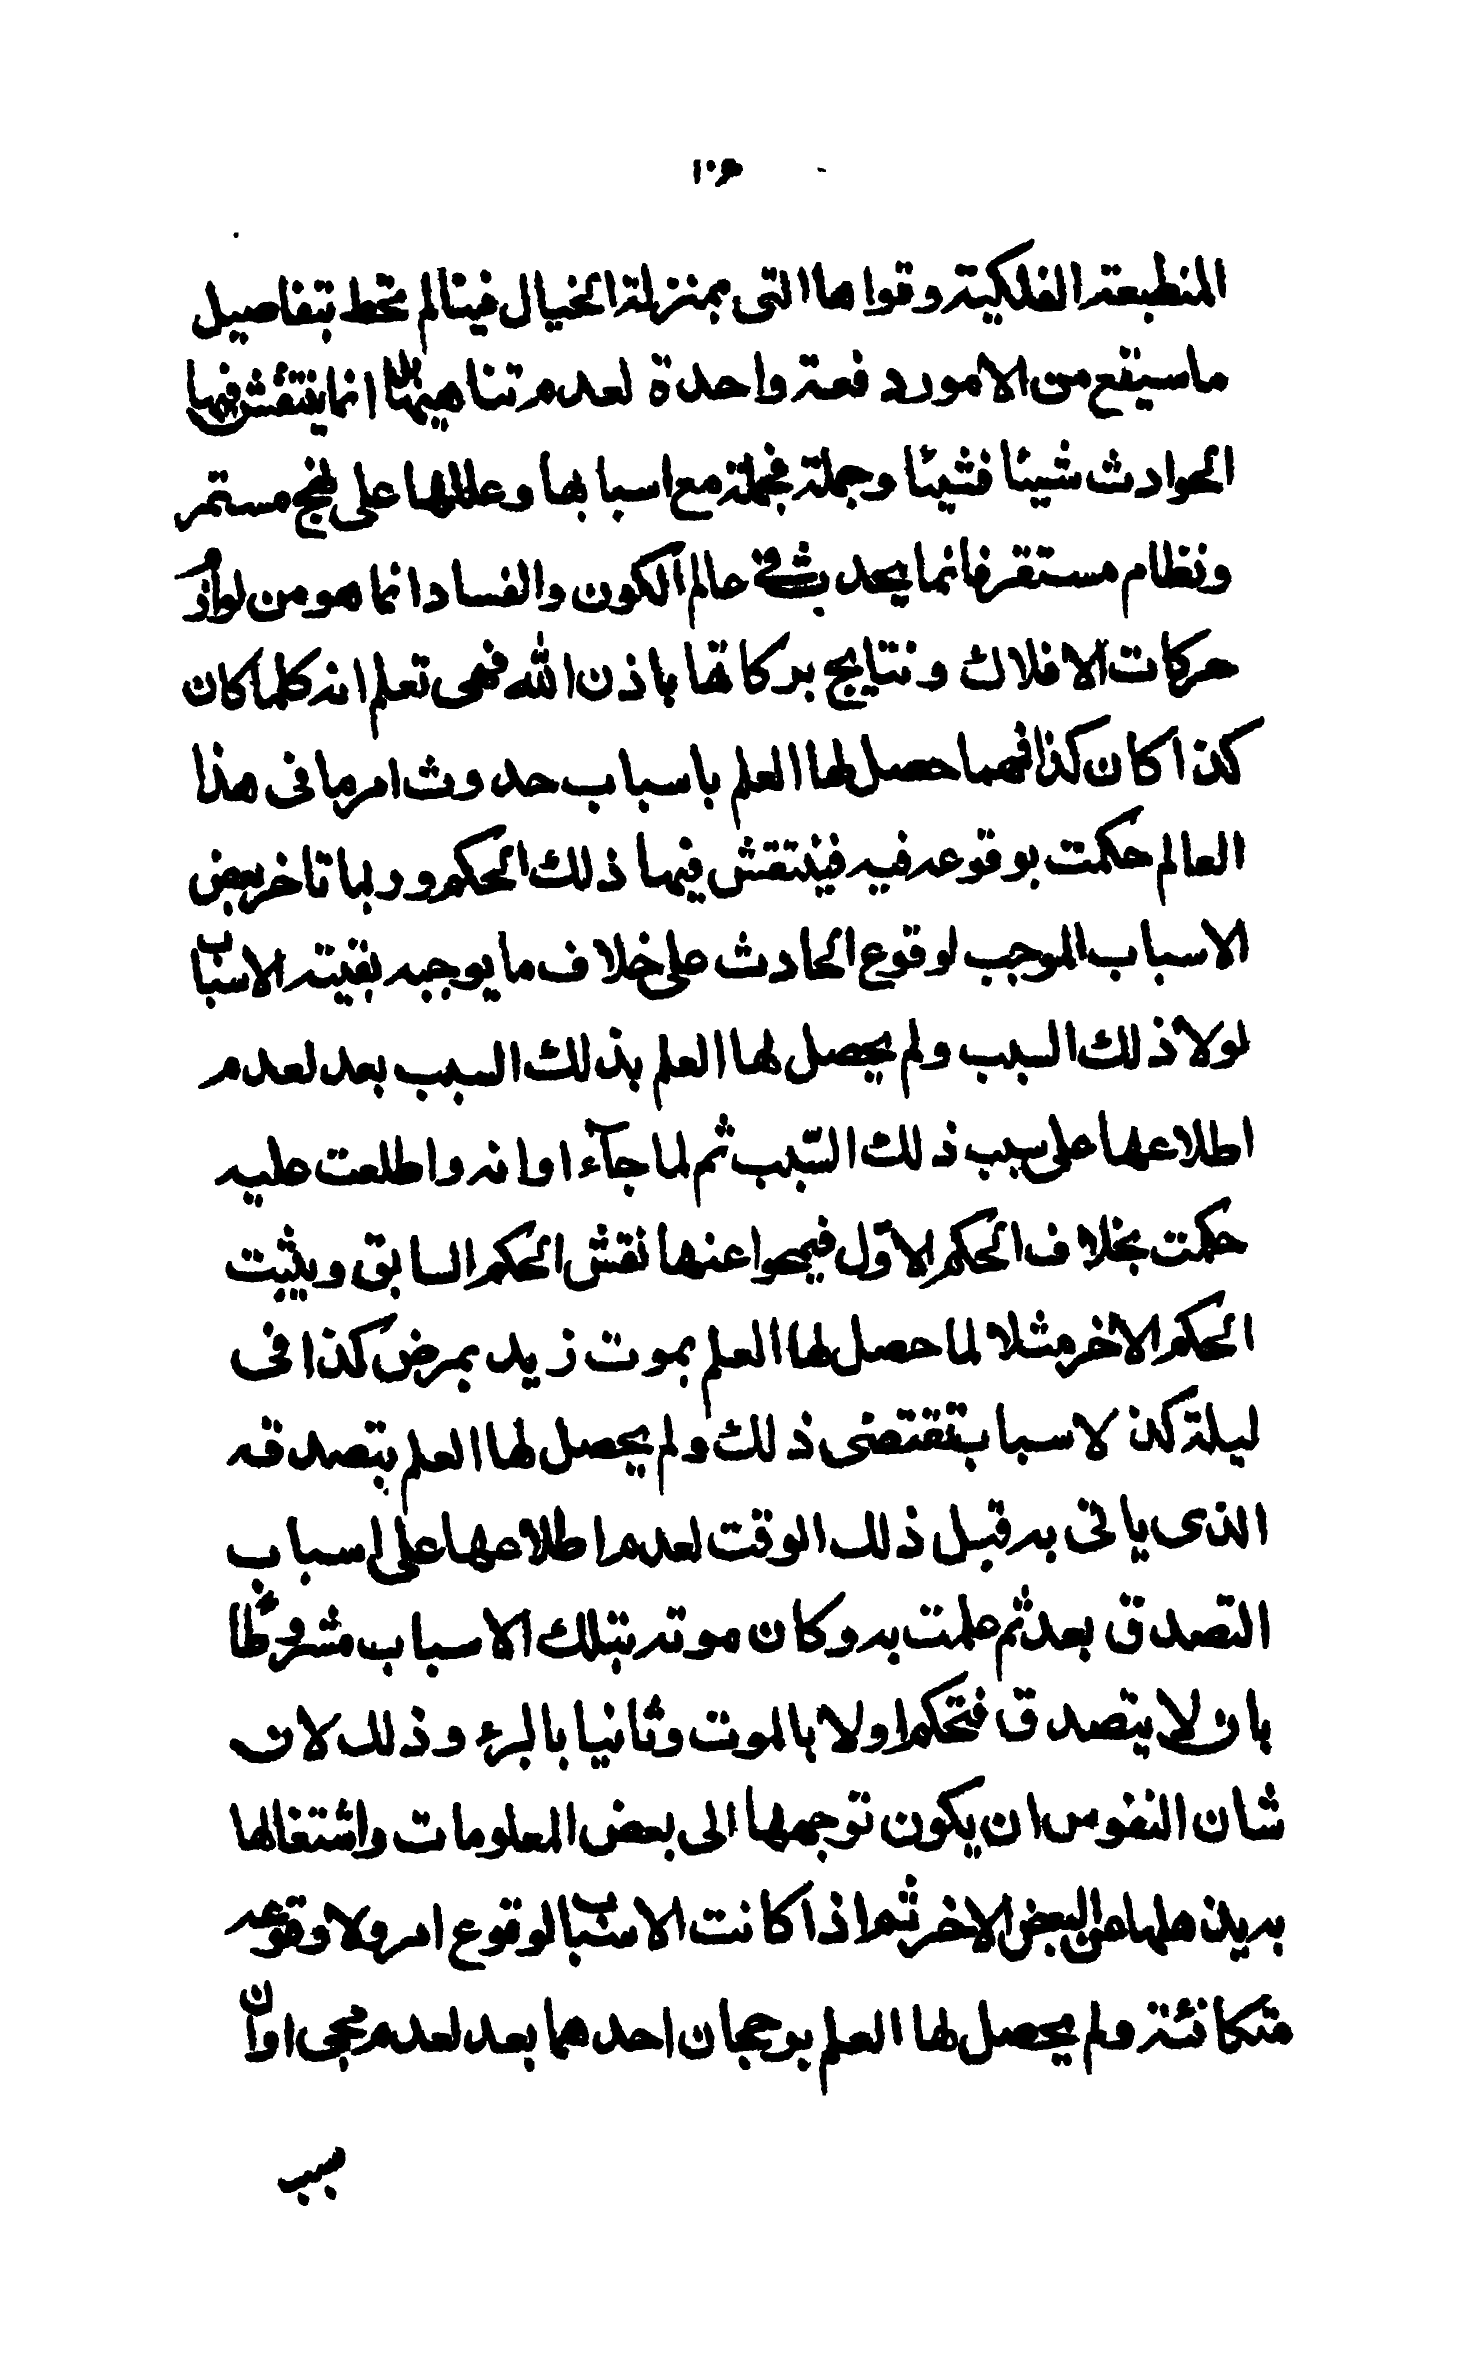 ١٠۶
المنطبعة الفلكية وقواها التى بمنزلة الخيال فينا لم تحط بتفاصيل
ما سيقع من الامور دفعة واحدة لعدم تناهيها بل انما ينتقش فيها
الحوادث شيئا فشيئا وجملة فجملة مع اسبابها وعللها على نهج مستمر
ونظام مستقر فانما يحدث فى عالم الكون والفساد انما هو من لوازم
حركات الافلاك ونتايج بركاتها باذن الله فهى تعلم انه كلما كان
كذا كان كذا فمهما حصل لها العلم باسباب حدوث امر ما فى هذا
العالم حكمت بوقوعه فيه فينتقش فيها ذلك الحكم وربما تاخر بعض
الاسباب الموجب لوقوع الحادث على خلاف ما يوجبه بقية الاسباب
لولا ذلك السبب ولم يحصل لها العلم بذلك السبب بعد لعدم
اطلاعها على سبب ذلك السّبب ثم لما جآء اوانه واطلعت عليه
حكمت بخلاف الحكم الاوّل فيمحوا عنها نقش الحكم السابق ويثبت
الحكم الاخر مثلا لما حصل لها العلم بموت زيد بمرض كذا فى
ليلة كذ لاسباب تقتضى ذلك ولم يحصل لها العلم بتصدقه
الذى ياتى به قبل ذلك الوقت لعدم اطلاعها على اسباب
التصدق بعد ثم علمت به وكان موته بتلك الاسباب مشروطا
بان لا يتصدق فتحكم اولا بالموت وثانيا بالبرء وذلك لان
شان النفوس ان يكون توجهها الى بعض المعلومات واشتغالها
به يذهلها عن البعض الاخر ثم اذا كانت الاسباب لوقوع امر ولا وقوعه
متكائنة ولم يحصل لها العلم برجحان احدهما بعد لعدم مجى اوان
سبب